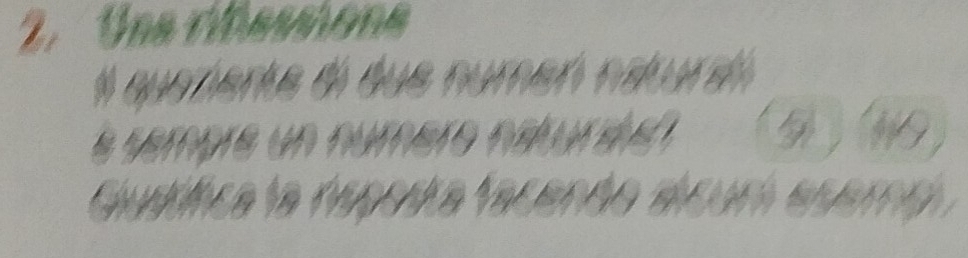 2. Una riflessione
Il quoziente di due numeri naturali
è sempre un numero naturale? SÌ NO
Giustifica la risposta facendo alcuni esempi.